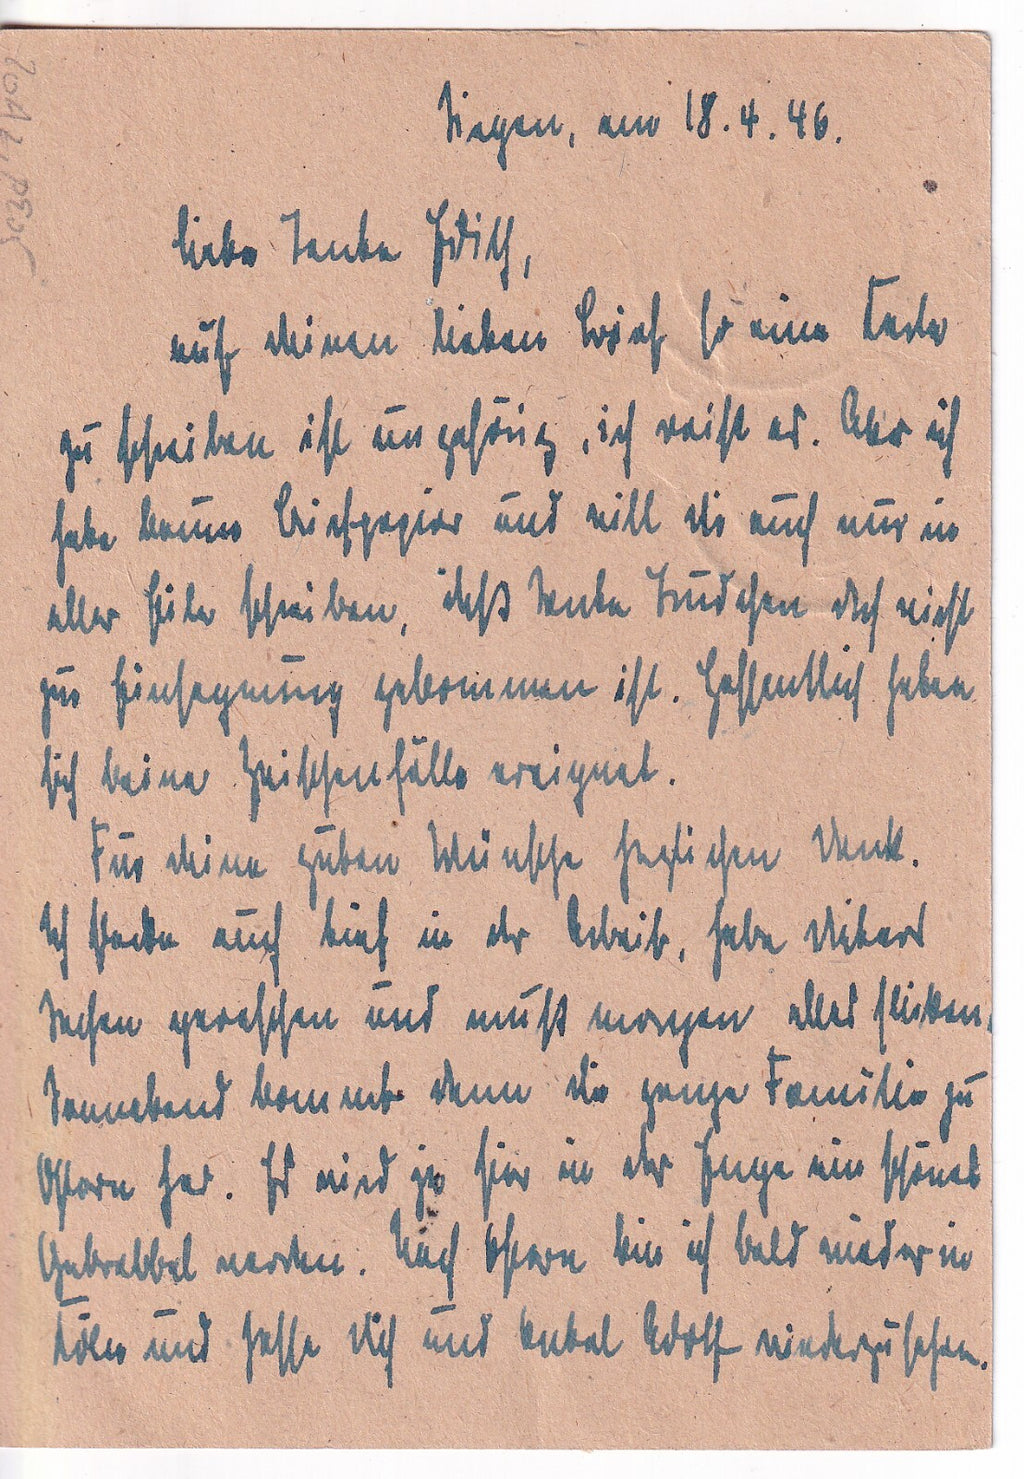 Siegen, am 18.4.46.
Liebe Tante Edith,
auf Deinen lieben Brief so eine Karte
zu schreiben ist ungehörig, ich weiß es. Aber ich
habe kaum Briefpapier und will Dir auch nur in
aller Eile schreiben, daß Tante Trudchen doch nicht
zur Einsegnung gekommen ist. Hoffentlich haben
sich keine Zwischenfälle ereignet.
Für Deine guten Wünsche herzlichen Dank.
Ich stecke auch tief in der Arbeit, habe
Sachen gewaschen und muß morgen alles flicken.
Sonnabend kommt dann die ganze Familie zu
Ostern her. Es wird ja hier in der Enge ein schönes
Gekrabbel werden. Nach Ostern bin ich bald wieder in
Köln und hoffe Dich und Onkel Adolf wiederzusehen.